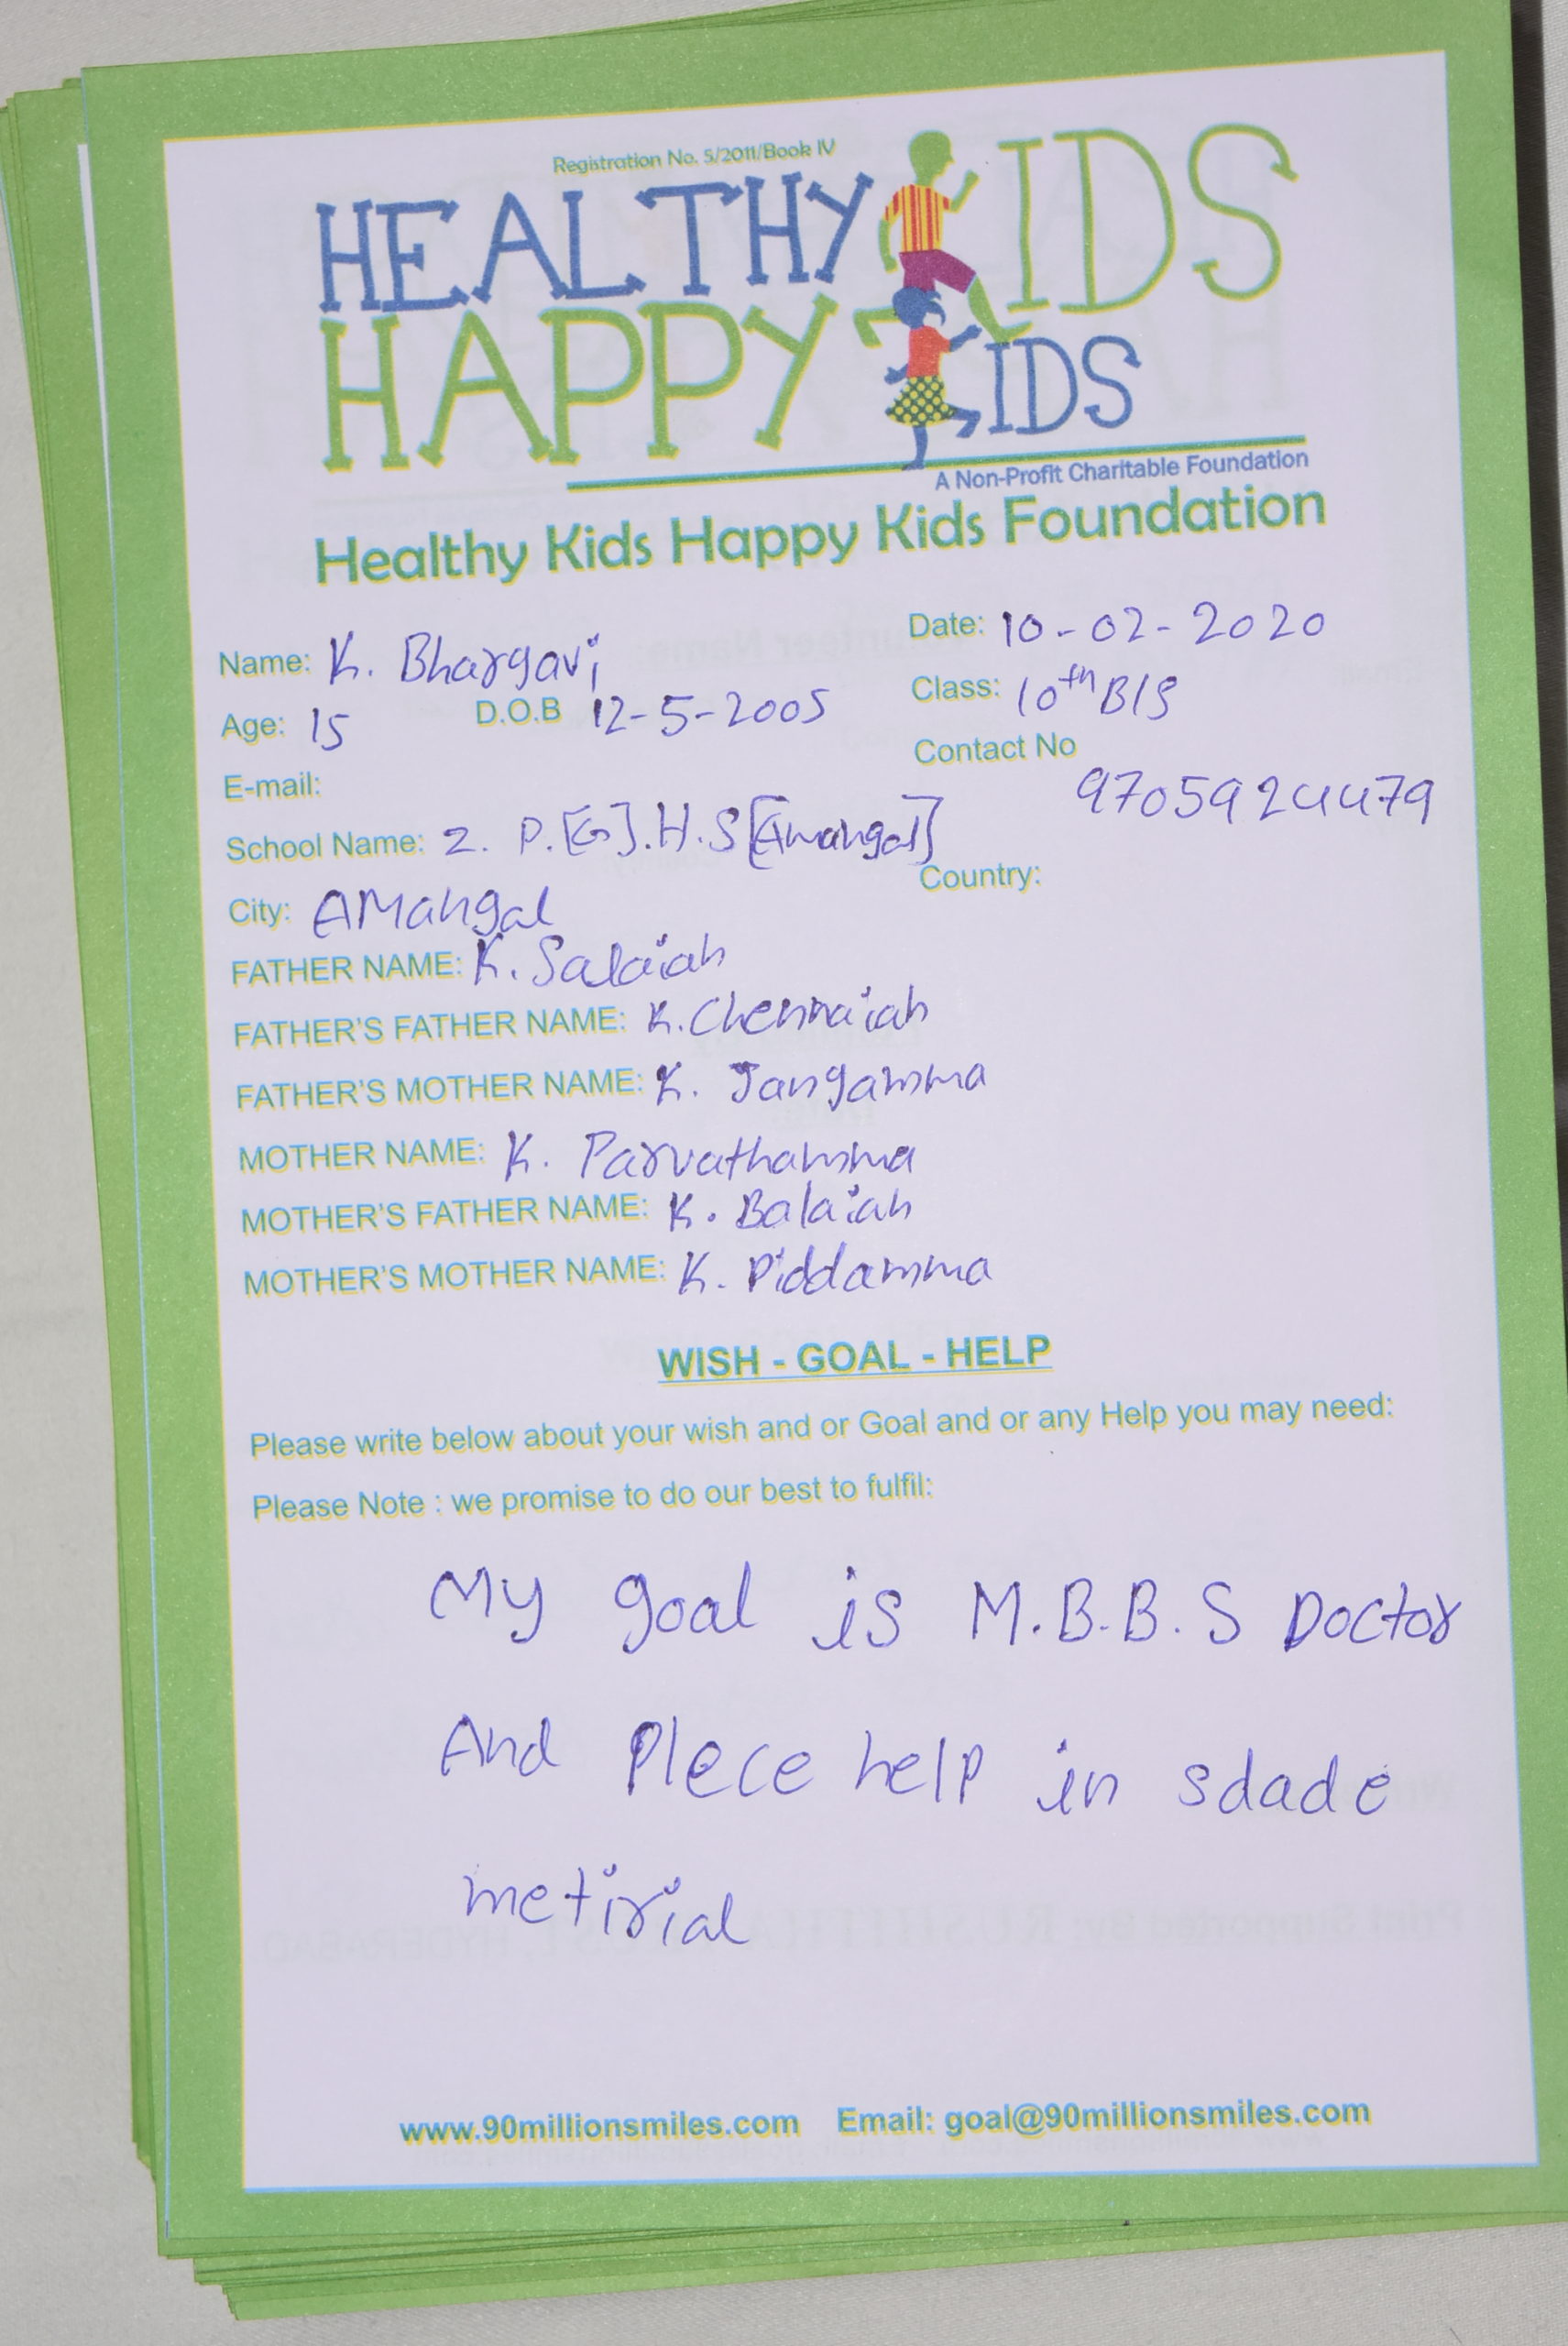 Registration No. 5/2011/Book IV
HEALTHY KIDS
HAPPY KIDS
A Non-Profit Charitable Foundation
Healthy Kids Happy Kids Foundation
Name: K. Bhargavi Date: 10-02-2020
Age: 15 D.O.B 12-5-2005 Class: 10th B/S
E-mail: Contact No 9705924479
School Name: Z. P.[G].H.S [Amangal]
City: AMangal Country:
FATHER NAME: K. Salaiah
FATHER'S FATHER NAME: K. Chennaiah
FATHER'S MOTHER NAME: K. Jangamma
MOTHER NAME: K. Parvathamma
MOTHER'S FATHER NAME: K. Balaiah
MOTHER'S MOTHER NAME: K. Piddamma
WISH - GOAL - HELP
Please write below about your wish and or Goal and or any Help you may need:
Please Note : we promise to do our best to fulfil:
My goal is M.B.B.S Doctor
And Plece help in sdade
metirial
www.90millionsmiles.com Email: goal@90millionsmiles.com